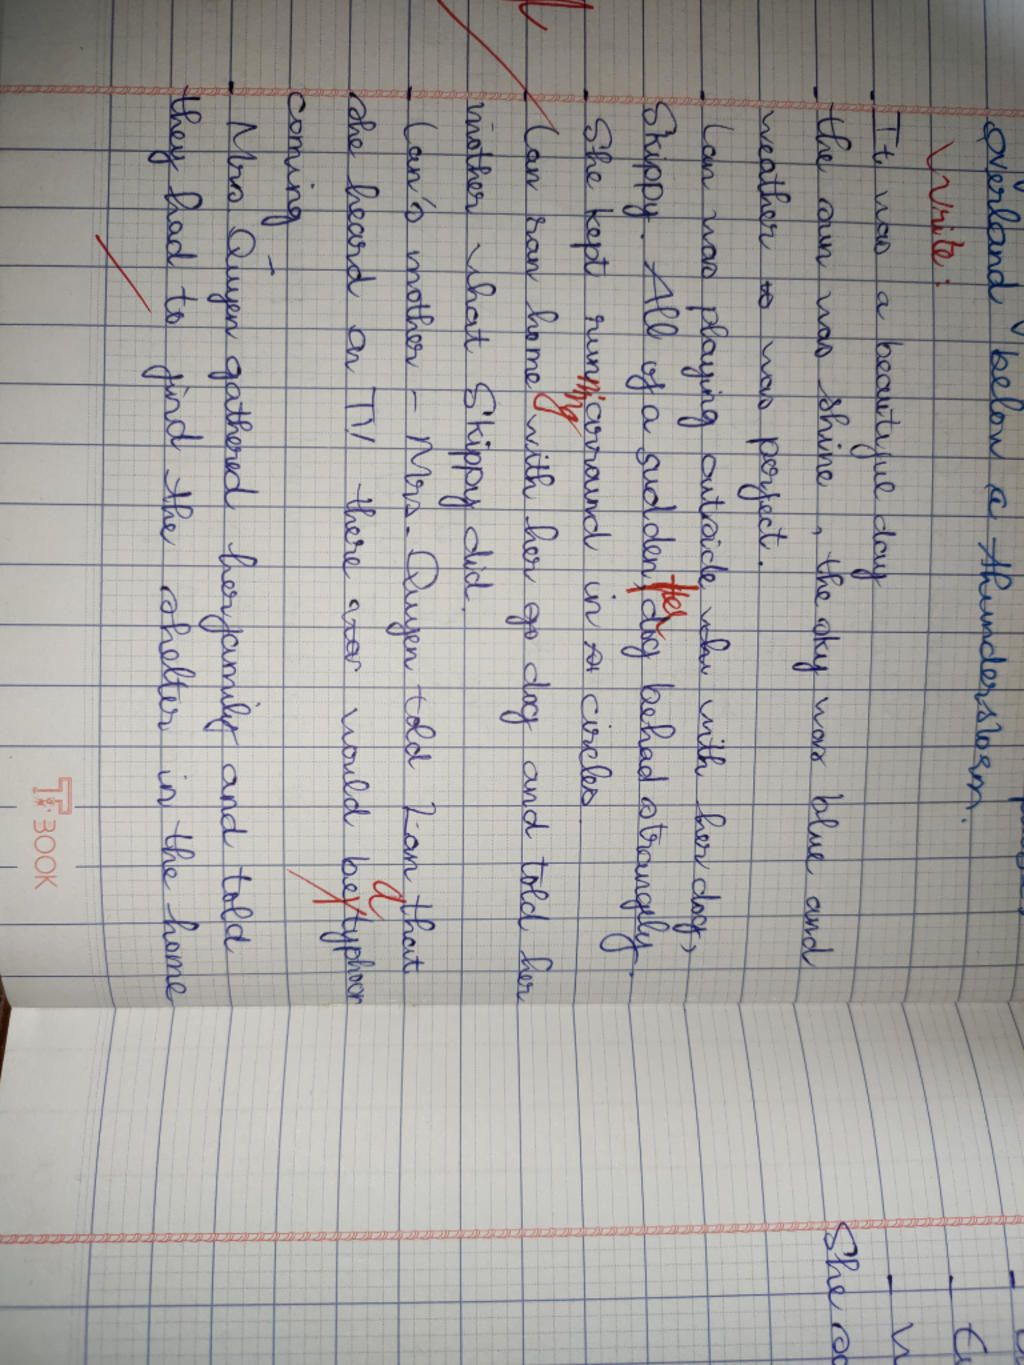 overland below a thunderstorm.
Write:
- It was a beautiful day
- the sun was shine, the sky was blue and
weather was perfect.
- Lan was playing outside with her dog,
Skippy. All of a sudden, her dog behad strangely.
- She kept running arround in circles.
- Lan ran home with her dog and told her
mother what Skippy did.
- Lan's mother - Mrs. Quyen told Lan that
she heard on TV there would be a typhoon
coming
- Mrs Quyen gathered her family and told
they had to find the shelter in the home
T BOOK
She